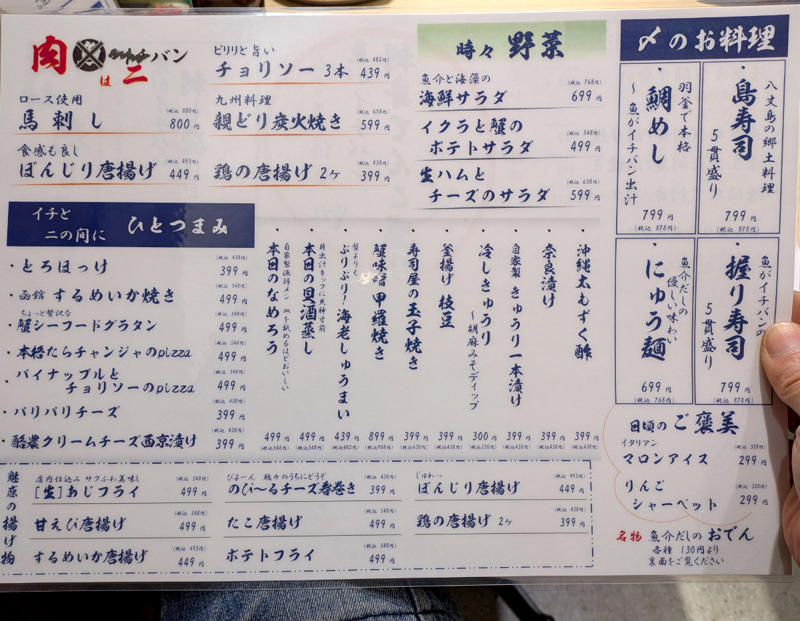 肉は二バン
ロース使用
馬刺し 800円 (税込 880円)
食感も良し
ぼんじり唐揚げ 449円 (税込 493円)
ピリリと旨い
チョリソー 3本 439円 (税込 482円)
九州料理
親どり炭火焼き 599円 (税込 658円)
鶏の唐揚げ 2ヶ 399円 (税込 438円)
時々 野菜
魚介と海藻の
海鮮サラダ 699円 (税込 768円)
イクラと蟹の
ポテトサラダ 499円 (税込 548円)
生ハムと
チーズのサラダ 599円 (税込 658円)
〆のお料理
八丈島の郷土料理
・島寿司
5貫盛り
799円
(税込 878円)
羽釜で本格
・鯛めし
～魚がイチバン出汁
799円
(税込 878円)
魚がイチバンの
・握り寿司
5貫盛り
799円
(税込 878円)
魚介だしの
優しい味わい
・にゅう麺
699円
(税込 768円)
イチと
二の間に ひとつまみ
・とろほっけ 399円 (税込 438円)
・函館 するめいか焼き 499円 (税込 548円)
ちょっと贅沢な
・蟹シーフードグラタン 499円 (税込 548円)
・本格たらチャンジャのpizza 499円 (税込 548円)
・パイナップルと
チョリソーのpizza 499円 (税込 548円)
・パリパリチーズ 399円 (税込 438円)
・醗濃クリームチーズ西京漬け 399円 (税込 438円)
・沖縄太もずく酢 399円
・奈良漬け 399円
自家製
・きゅうり一本漬け 399円
・冷しきゅうり
～胡麻みそディップ 300円
・釜揚げ 枝豆 399円
・寿司屋の玉子焼き 399円
・蟹味噌 甲羅焼き 899円
蟹よりも
・ぷりぷり！海老しゅうまい 439円
貝出汁キックに失神寸前
・本日の貝酒蒸し 499円
自家製漁師メシ 皿を舐めるほどおいしい
・本日のなめろう 499円
魅惑の揚げ物
店内仕込み サクふわ美味し
[生]あじフライ 499円 (税込 548円)
甘えび唐揚げ 499円 (税込 548円)
するめいか唐揚げ 449円 (税込 493円)
びよーん 熱々のうちにどうぞ
のび～るチーズ春巻き 399円 (税込 438円)
たこ唐揚げ 499円 (税込 548円)
ポテトフライ 499円 (税込 548円)
じゅわっ
ぼんじり唐揚げ 449円 (税込 493円)
鶏の唐揚げ 2ヶ 399円 (税込 438円)
日頃のご褒美
イタリアン
マロンアイス 299円 (税込 328円)
りんご
シャーベット 299円 (税込 328円)
名物 魚介だしのおでん
各種 130円より
裏面をご覧ください